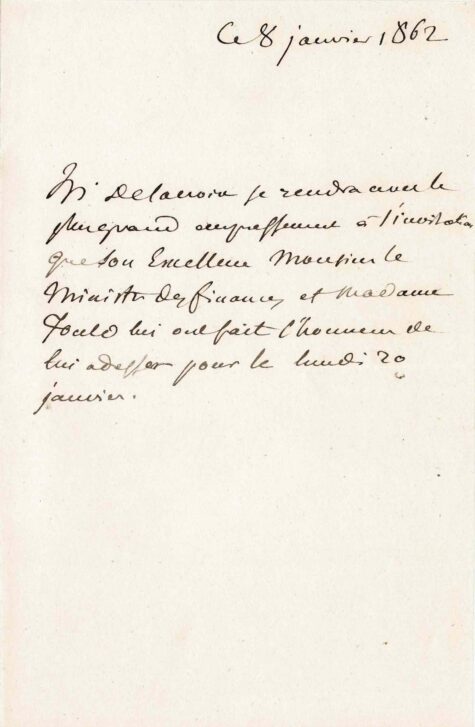 Ce 8 janvier 1862
Mr Delacroix se rendra avec le
plus grand empressement à l'invitation
que Son Excellence Monsieur le
Ministre des finances et Madame
Fould lui ont fait l'honneur de
lui adresser pour le lundi 20
janvier.